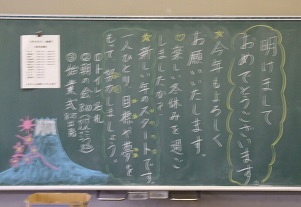 明けまして
おめでとうございます
★今年もよろしく
お願いいたします。
楽しい冬休みを過ご
しましたか？
★新しい年のスタートです。
一人ひとり、目標や夢を
もって
しましょう。
①トイレ、名札
②朝の会
③始業式